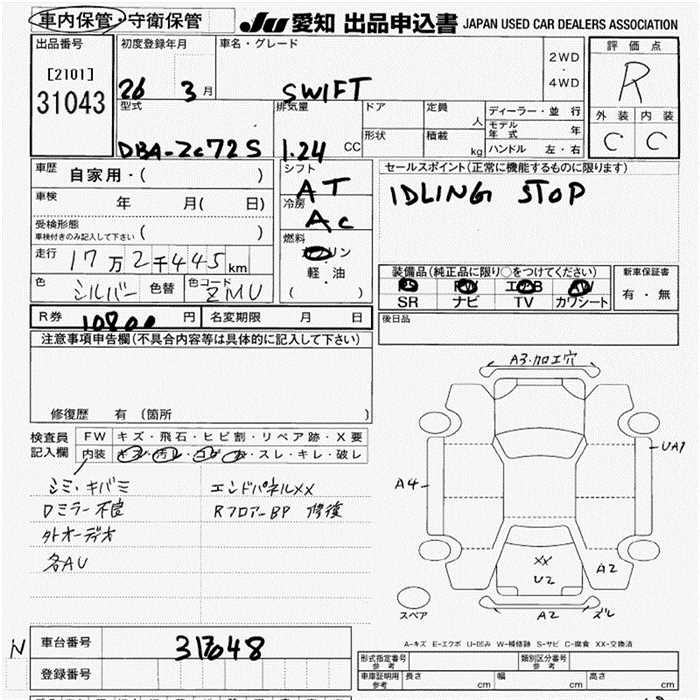 車内保管・守衛保管 JU 愛知 出品申込書 JAPAN USED CAR DEALERS ASSOCIATION
出品番号 初度登録年月 車名・グレード 2WD・4WD 評価点
[2101] 31043 26 3月 SWIFT R
型式 排気量 ドア 定員 人 ディーラー・並行 外装 内装
モデル年式 年
DBA-ZC72S 1.24 CC 形状 積載 kg ハンドル 左・右 C C
車歴 自家用・( ) シフト AT セールスポイント(正常に機能するものに限ります)
車検 年 月( 日) 冷房 AC IDLING STOP
受検形態 車検付きのみ記入して下さい ( )
燃料 ガソリン
走行 17万2千445km 軽・油 装備品(純正品に限り○をつけてください) 新車保証書
色 シルバー 色替 色コード ZMU ( ) PS PW エアB AW 有・無
SR ナビ TV カワシート
R券 10800円 名変期限 月 日 後日品
注意事項申告欄(不具合内容等は具体的に記入して下さい)
修復歴 有 (箇所 )
A3・加工穴
UA1
A4
検査員記入欄 FW キズ・飛石・ヒビ割・リペア跡・X要
内装 キズ・汚レ・コゲ・穴・スレ・キレ・破レ
シミ・キバミ エンドパネルXX
Dミラー不良 RフロアーBP 修復
外オーディオ
各AU
XX
U2
A2
スペア A2 ズレ
A-キズ E-エクボ U-凹み W-補修跡 S-サビ C-腐食 XX-交換済
N 車台番号 313048
登録番号
形式指定番号 参考 類別区分番号 参考
車庫証明用 参考 長さ cm 幅 cm 高さ cm